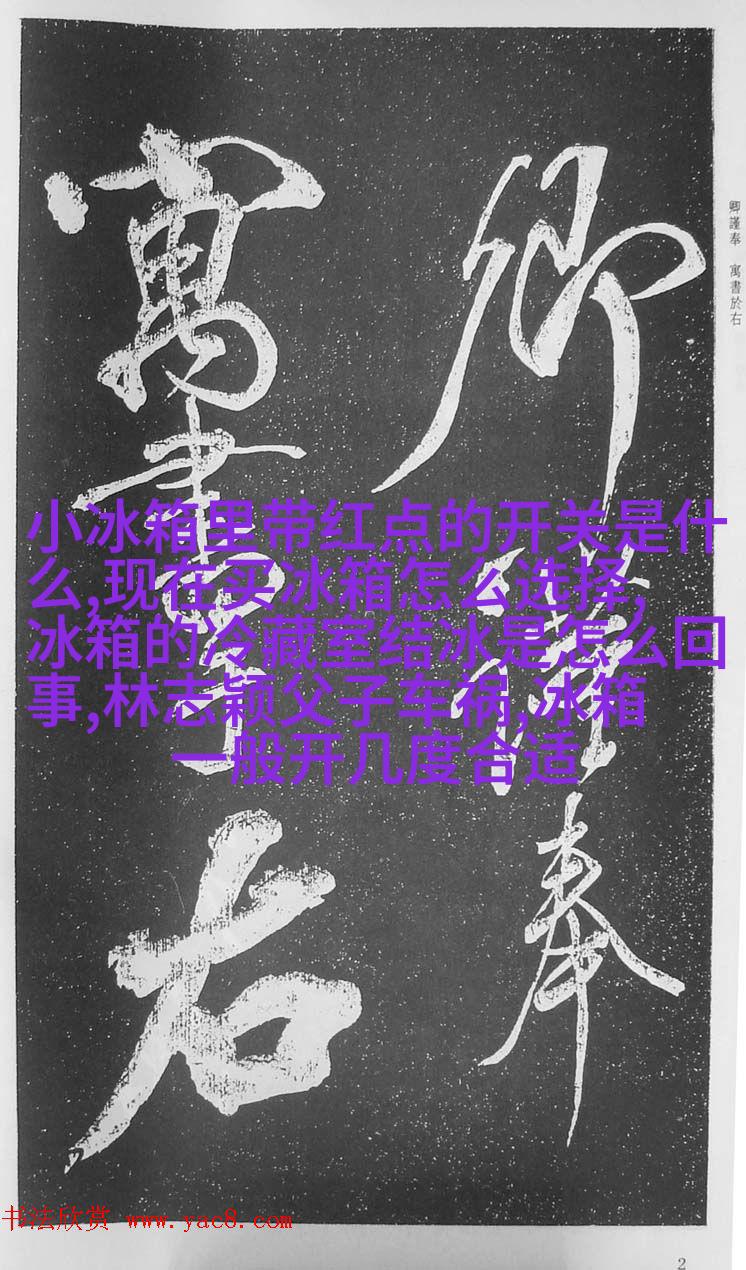 卿謹奉
寓書右
卿謹奉 寓書於右
小冰箱里带红点的开关是什
么,现在买冰箱怎么选择,
冰箱的冷藏室结冰是怎么回
事,林志颖父子车祸,冰箱
一般开几度合适
书法欣赏 www.yac8.com
2